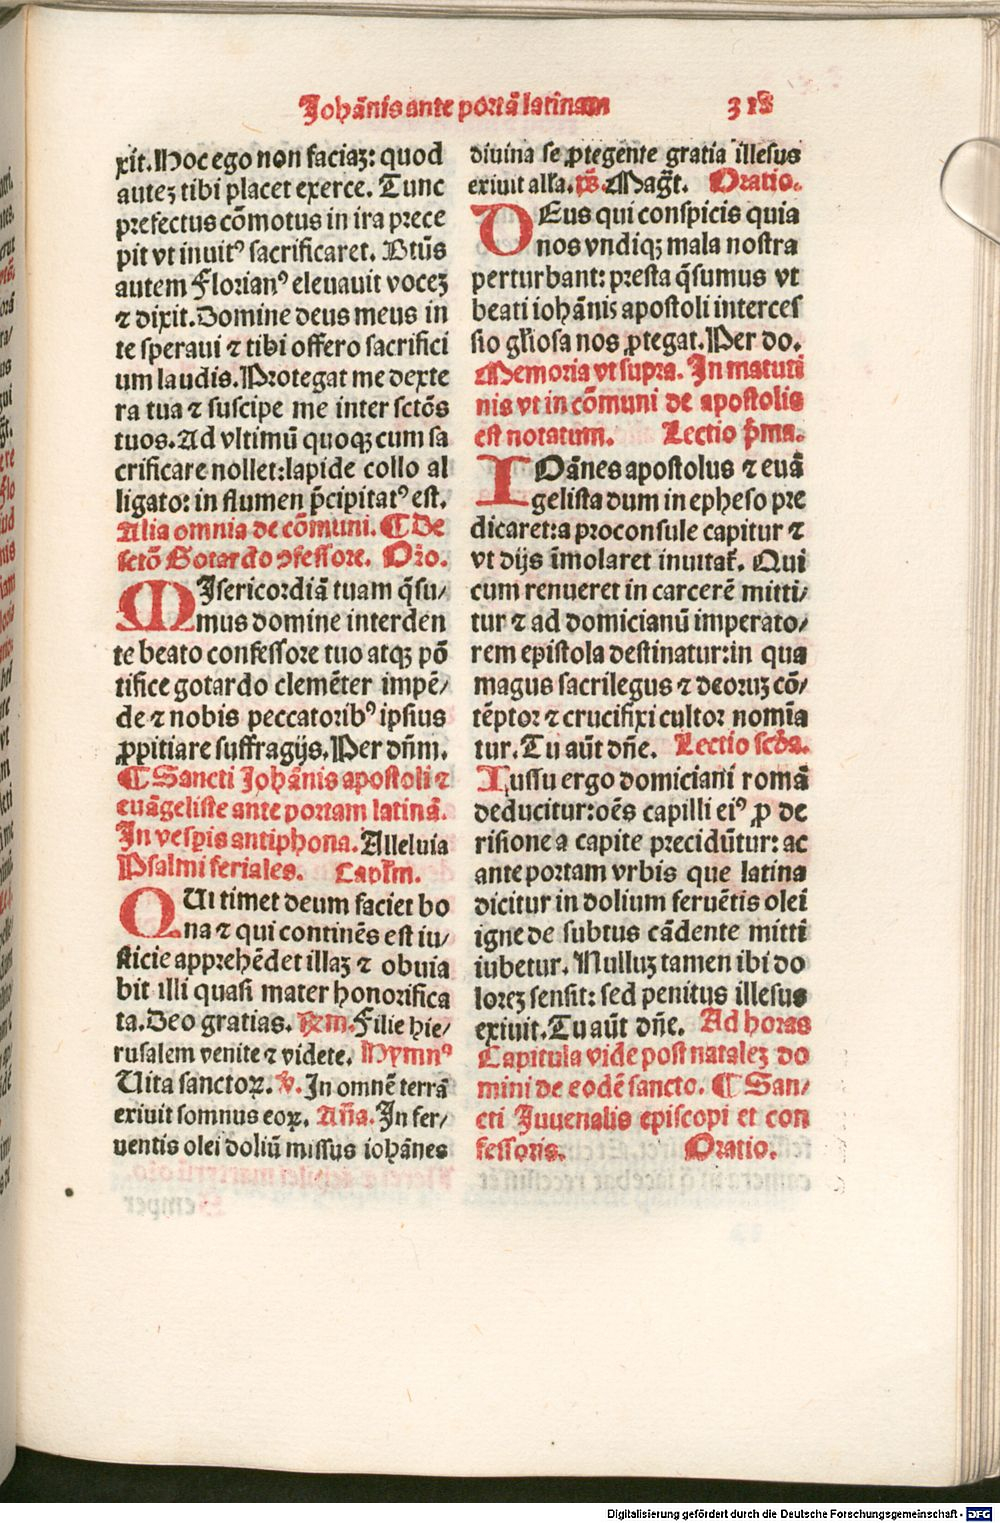 Johãnis ante portã latinam 318
xit. Hoc ego non faciaz: quod
autez tibi placet exerce. Tunc
prefectus cõmotus in ira prece
pit vt inuitꝰ sacrificaret. Btũs
autem Florianꝰ eleuauit vocez
⁊ dixit. Domine deus meus in
te speraui ⁊ tibi offero sacrifici
um laudis. Protegat me dexte
ra tua ⁊ suscipe me inter sctõs
tuos. Ad vltimũ quoqꝫ cum sa
crificare nollet: lapide collo al
ligato: in flumen p̃cipitatꝰ est.
Alia omnia de cõmuni. ¶ De
sctõ Gotardo ꝯfessore. Oro.
MIsericordiã tuam q̃su/
mus domine interden
te beato confessore tuo atqꝫ põ
tifice gotardo clemẽter impẽ/
de ⁊ nobis peccatoribꝰ ipsius
ꝓpitiare suffragijs. Per dñm.
¶ Sancti Johãnis apostoli ⁊
euãgeliste ante portam latinã.
In vesp̲is antiphona. Alleluia
Psalmi feriales. Capl̃m.
QUi timet deum faciet bo
na ⁊ qui continẽs est iu/
sticie apprehẽdet illaz ⁊ obuia
bit illi quasi mater honorifica
ta. Deo gratias. R̃m. Filie hie/
rusalem venite ⁊ videte. Hymnꝰ
Uita sanctoꝝ. ℣. In omnẽ terrã
exiuit somnus eoꝝ. Añã. In fer/
uentis olei doliũ missus iohãnes
diuina se ꝓtegente gratia illesus
exiuit alľa. p̃s. Mag̃t. Oratio.
DEus qui conspicis quia
nos vndiqꝫ mala nostra
perturbant: presta q̃sumus vt
beati iohãnis apostoli interces
sio gľiosa nos ꝓtegat. Per do.
Memoria vt supra. In matuti
nis vt in cõmuni de apostolis
est notatum. Lectio p̃ma.
IOãnes apostolus ⁊ euã
gelista dum in epheso pre
dicaret: a proconsule capitur ⁊
vt dijs ĩmolaret inuitat̃. Qui
cum renueret in carcerẽ mitti/
tur ⁊ ad domicianũ imperato/
rem epistola destinatur: in qua
magus sacrilegus ⁊ deoruz cõ/
tẽptor ⁊ crucifixi cultor nomĩa
tur. Tu aũt dñe. Lectio scďa.
Iussu ergo domiciani romã
deducitur: oẽs capilli eiꝰ ꝓ de
risione a capite precidũtur: ac
ante portam vrbis que latina
dicitur in dolium feruẽtis olei
igne de subtus cãdente mitti
iubetur. Nulluz tamen ibi do
lorez sensit: sed penitus illesus
exiuit. Tu aũt dñe. Ad horas
Capitula vide post natalez do
mini de eodẽ sancto. ¶ San/
cti Juuenalis episcopi et con
fessoris. Oratio.
Digitalisierung gefördert durch die Deutsche Forschungsgemeinschaft - DFG